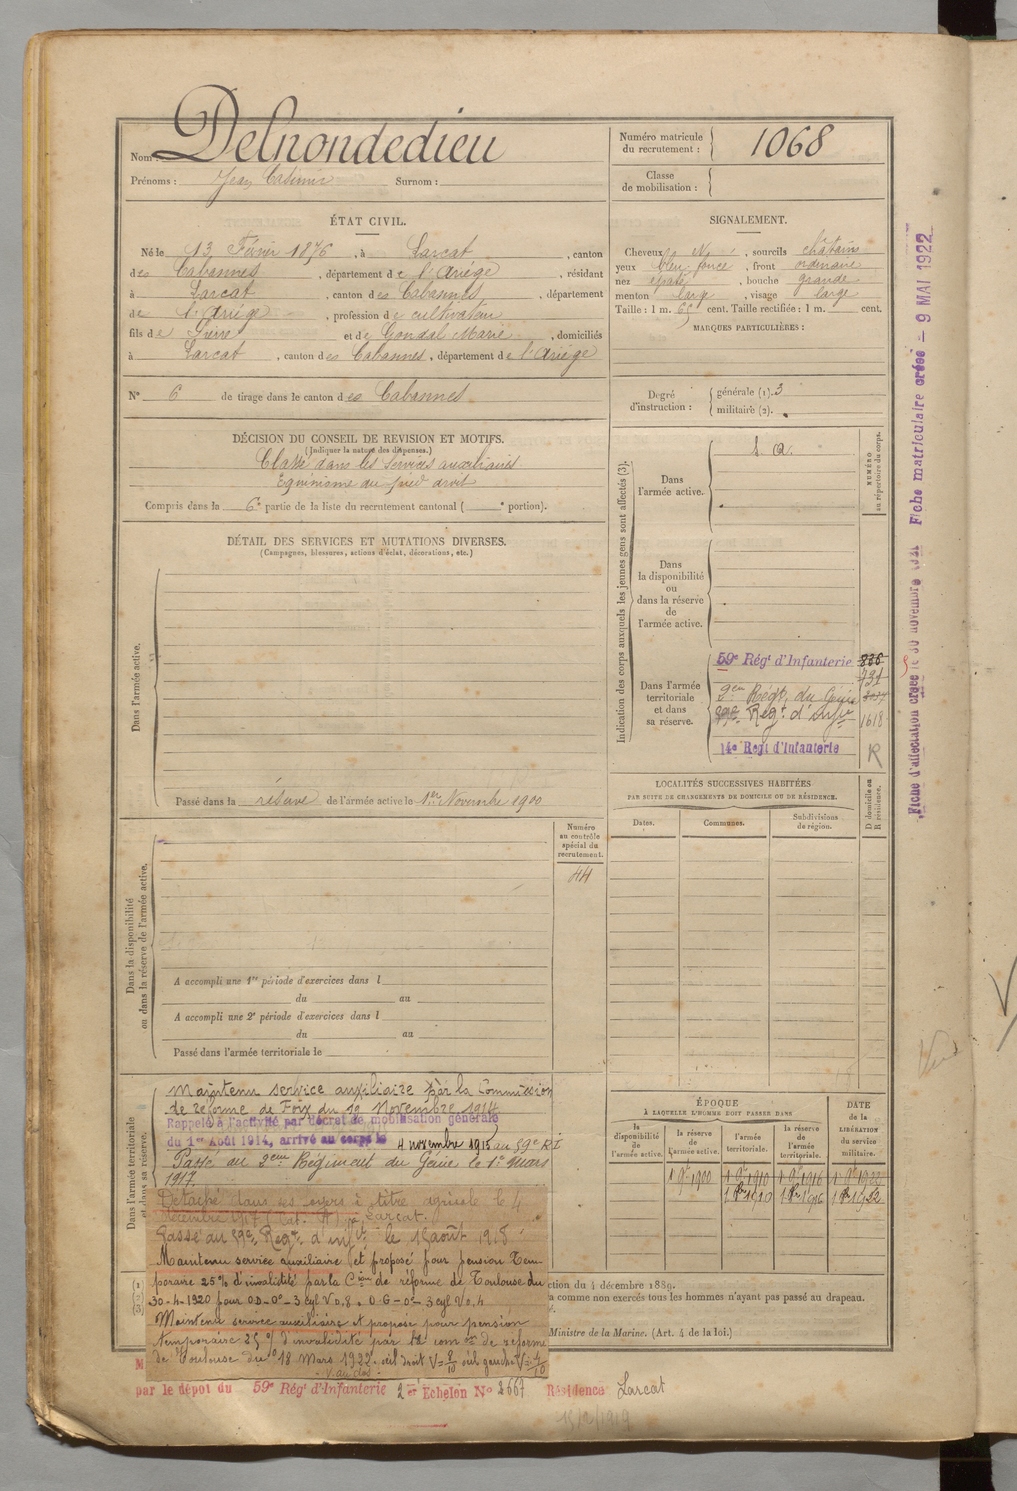 Nom : Delnondedieu
Prénoms : Jean Casimir Surnom :
Numéro matricule du recrutement : 1068
Classe de mobilisation :
ÉTAT CIVIL.
Né le 13 Février 1876, à Larcat, canton
des Cabannes, département de l'Ariège, résidant
à Larcat, canton des Cabannes, département
de l'Ariège, profession de cultivateur
fils de Pierre et de Gondal Marie, domiciliés
à Larcat, canton des Cabannes, département de l'Ariège
N° 6 de tirage dans le canton des Cabannes
SIGNALEMENT.
Cheveux N, sourcils châtains
yeux bleu foncé, front ordinaire
nez épaté, bouche grande
menton large, visage large
Taille : 1 m. 65 cent. Taille rectifiée : 1 m. cent.
MARQUES PARTICULIÈRES :
Degré d'instruction : générale (1). 3
militaire (2).
DÉCISION DU CONSEIL DE REVISION ET MOTIFS.
(Indiquer la nature des dispenses.)
Classé dans les services auxiliaires
Equinisme du pied droit
Compris dans la 6e partie de la liste du recrutement cantonal ( e portion).
DÉTAIL DES SERVICES ET MUTATIONS DIVERSES.
(Campagnes, blessures, actions d'éclat, décorations, etc.)
Dans l'armée active.
Passé dans la réserve de l'armée active le 1er Novembre 1900
Indication des corps auxquels les jeunes gens sont affectés (3).
NUMÉRO au répertoire du corps.
Dans l'armée active.
S. a.
Dans la disponibilité ou dans la réserve de l'armée active.
Dans l'armée territoriale et dans sa réserve.
59e Régt d'Infanterie 836
731
2em Régt du Génie
59e Régt d'Infie 1618
14e Regt d'Infanterie R
LOCALITÉS SUCCESSIVES HABITÉES
PAR SUITE DE CHANGEMENTS DE DOMICILE OU DE RÉSIDENCE.
D domicile ou R résidence.
Dates. Communes. Subdivisions de région.
Dans la disponibilité ou dans la réserve de l'armée active.
Numéro au contrôle spécial du recrutement.
44
A accompli une 1re période d'exercices dans l
du au
A accompli une 2e période d'exercices dans l
du au
Passé dans l'armée territoriale le
Dans l'armée territoriale et dans sa réserve.
Maintenu service auxiliaire par la Commission
de réforme de Foix du 19 Novembre 1914
Rappelé à l'activité par décret de mobilisation générale
du 1er Août 1914, arrivé au corps le 4 novembre 1915 au 59e RI
Passé au 2eme Régiment du Génie le 1er mars
1917.
Détaché dans ses foyers à titre agricole le 4
décembre 1917 (Cat. A) Larcat.
Passé au 59e Régt d'infie le 15 août 1918
Maintenu service auxiliaire et proposé pour pension Tem-
poraire 25% d'invalidité par la Cion de réforme de Toulouse du
30-4-1920 pour OD-0°-3 cyl V 0,8. OG-0°-3 cyl V 0,4
Maintenu service auxiliaire et proposé pour pension
temporaire 25% d'invalidité par la com on de réforme
de Toulouse du 18 Mars 1922. oeil droit V=8/10 oeil gauche V=4/10
V. au dos.
ÉPOQUE
À LAQUELLE L'HOMME DOIT PASSER DANS
la disponibilité de l'armée active. la réserve de l'armée active. l'armée territoriale. la réserve de l'armée territoriale.
DATE de la LIBÉRATION du service militaire.
1 9bre 1900 1 9bre 1910 1 9bre 1916 1 9bre 1922
1 1910 1 1916 1 1922
ction du 4 décembre 1889.
a comme non exercés tous les hommes n'ayant pas passé au drapeau.
Ministre de la Marine. (Art. 4 de la loi.)
par le dépot du 59e Régt d'Infanterie 2e Echelon No 2667 Résidence Larcat
15/2/1919
Fiche d'affectation créée le 30 novembre 1921 Fiche matriculaire créée - 9 MAI 1922